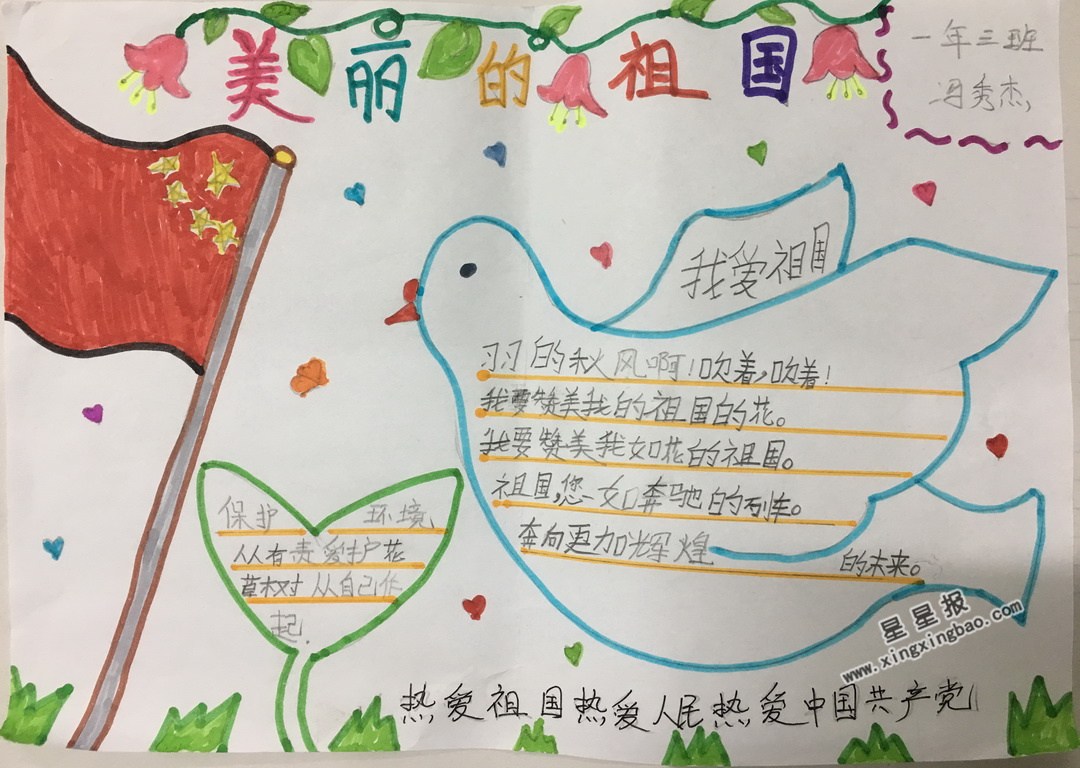 美丽的祖国
一年三班
冯秀杰
我爱祖国
羽的秋风啊！吹着，吹着！
我要赞美我的祖国的花。
我要赞美我如花的祖国。
祖国，您一如奔驰的列车。
奔向更加辉煌的未来。
保护环境、
从有责爱护花
草树从自己作
起.
热爱祖国热爱人民热爱中国共产党
星星报
www.xingxingbao.com